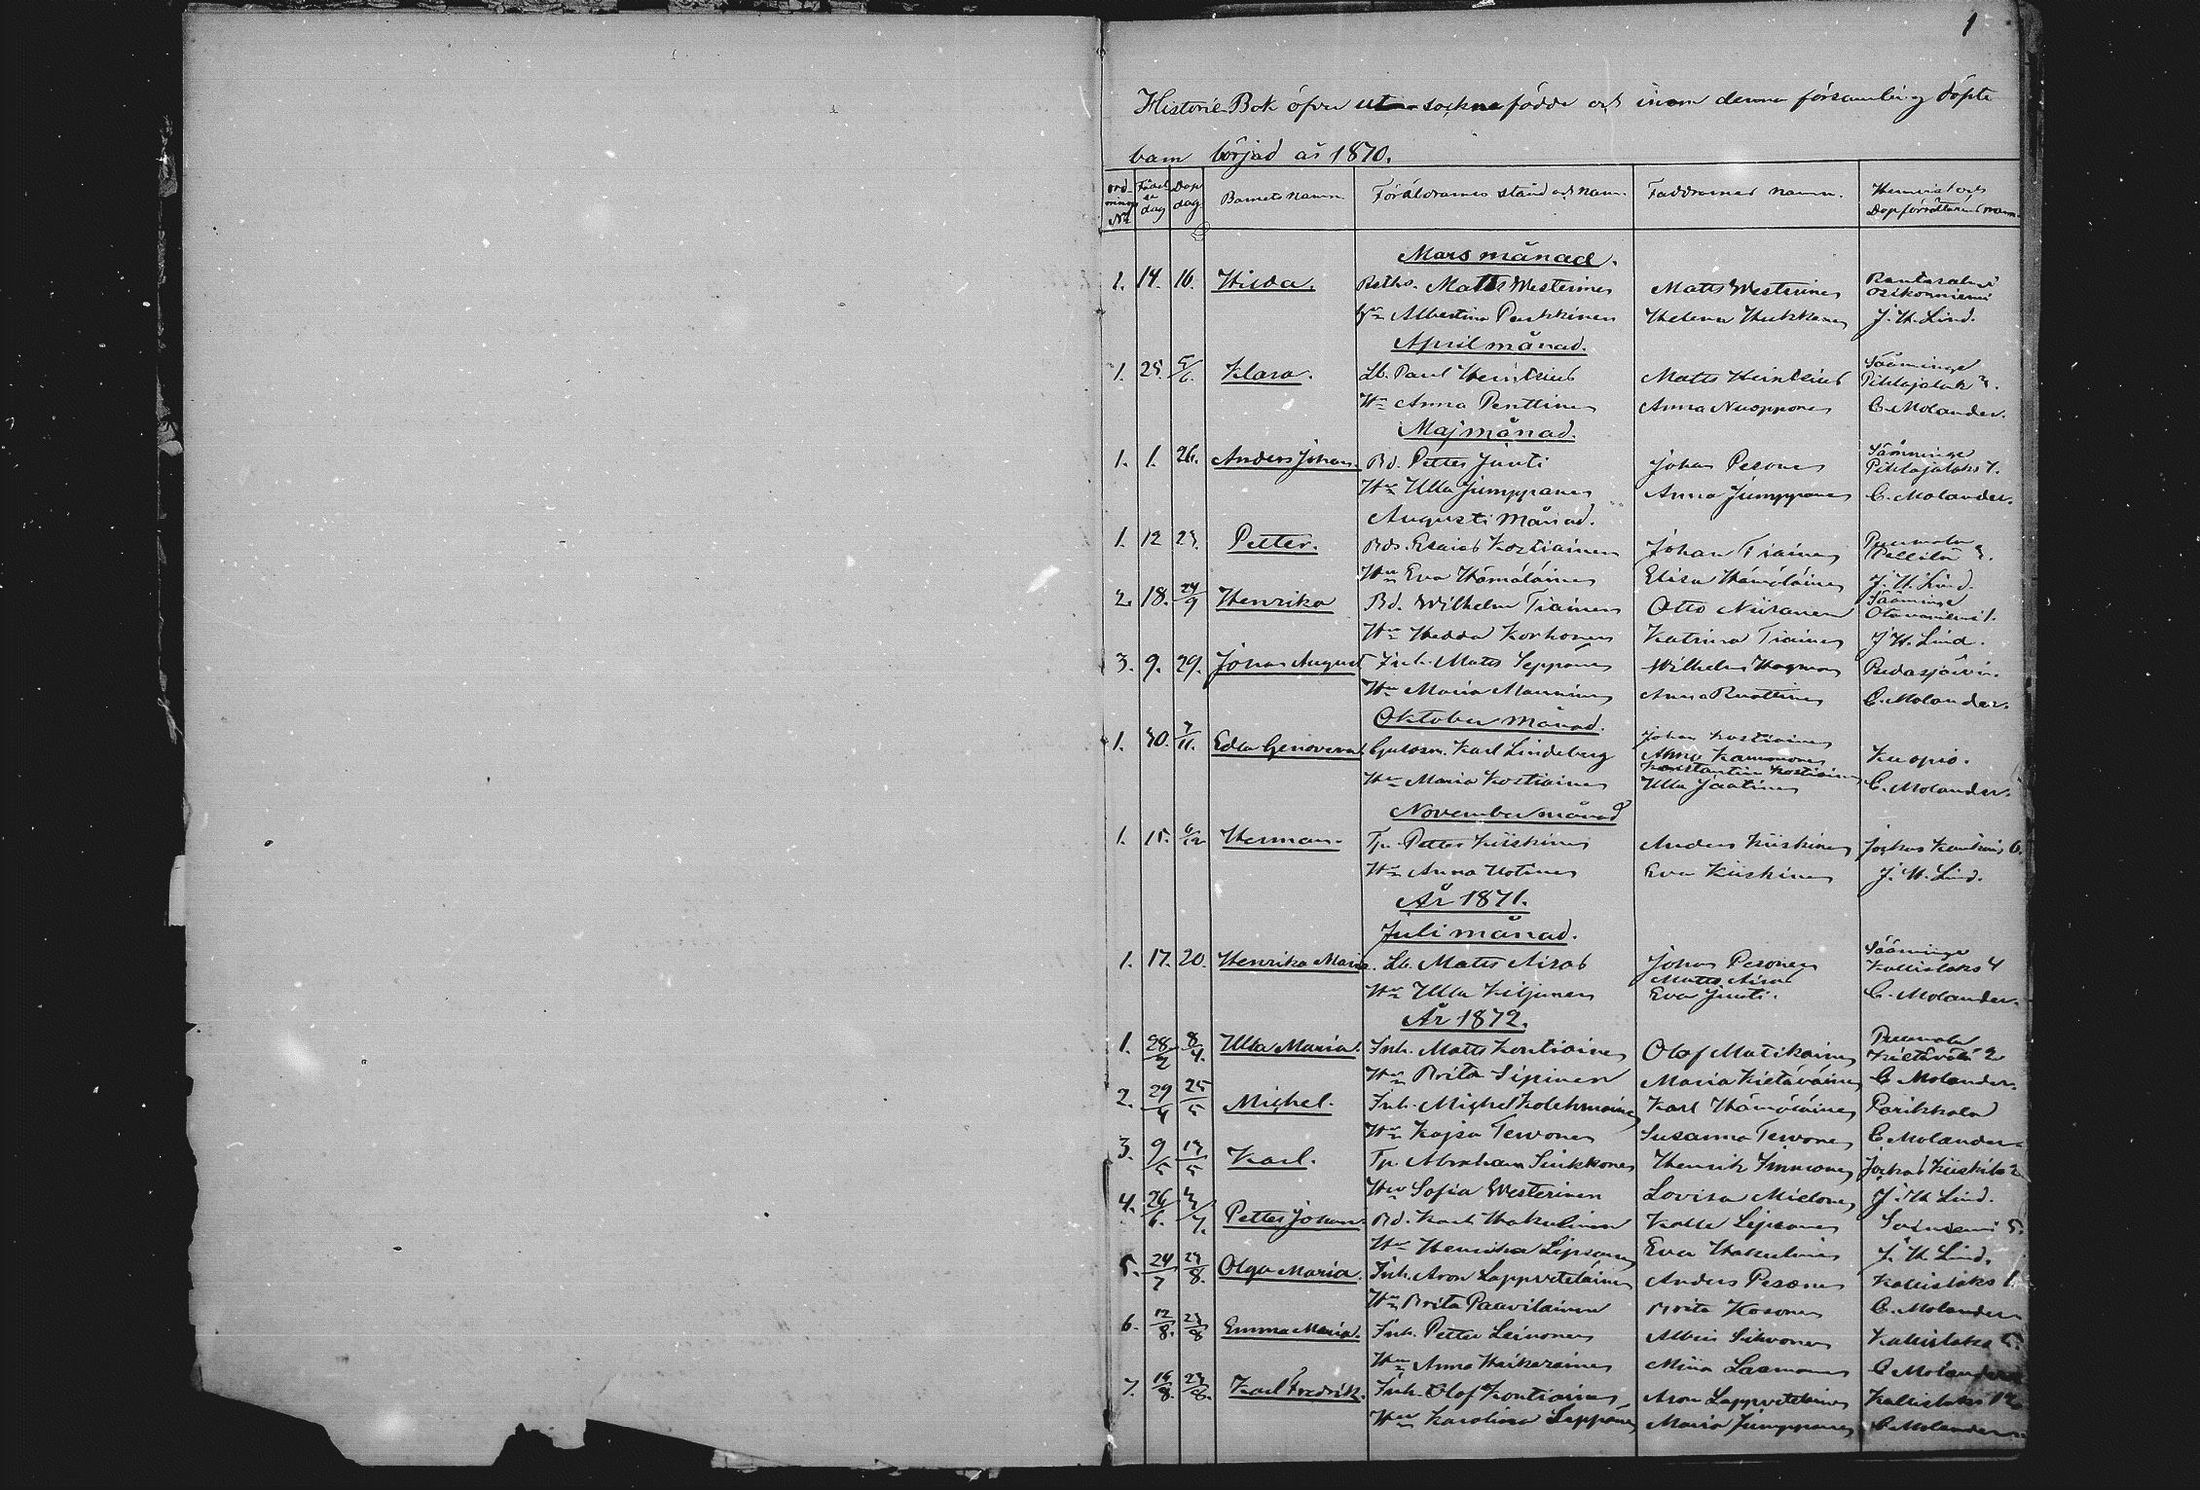 1
Historie Bok öfver utom sockne födde och inom denna församling döpte
barn börjad år 1870.
Ord-nings No Födel se dag Dop dag Barnets namn Föräldrarnes stånd och namn. Faddrarnes namn. Hemvist och Dopförrättarens namn
Mars månad.
1. 14. 16. Hilda. Matts Westerinen Matts Westerinen Rantasalmi
Osikonniemi
Hu Albertina Parkkinen Helena Hukkanen J. H. Lind.
April månad.
1. 25. 5/6. Klara. Lb. Paul Heintzius Matts Heintzius Sääminge
Pihlajalaks 3.
Hu Anna Penttinen Anna Nuopponen C. Molander.
Maj månad.
1. 1. 26. Anders Johan. Bd. Petter Juuti Johan Pesonen Sääminge
Pihlajalaks 7.
Hu Ulla Jumppanen Anna Jumppanen C. Molander.
Augusti månad.
1. 12 23. Petter. Bds. Esaias Kostiainen Johan Tiainen Puumala
Hu Eva Hämäläinen Elisa Hämäläinen J. H. Lind.
2. 18. 24/9 Henrika Bd. Wilhelm Tiainen Otto Niiranen Sääminge
Otavaniemi 1.
Hu Hedda Korhonen Katrina Tiainen J. H. Lind.
3. 9. 29. Johan August Inh. Matts Seppänen Wilhelm Hagman
Hu Maria Manninen Anna Ruottinen C. Molander.
Oktober månad.
1. 30. 7/11. Edla Genoveva. Karl Lindeberg Johan Kostiainen
Anna Kammonen Kuopio.
Konstantin Kostiainen
Hu Maria Kostiainen Ulla Jäätinen C. Molander.
November månad
1. 15. 6/12 Herman. Tp. Petter Kiiskinen Anders Kiiskinen Jockas 6.
Hu Anna Hotinen Eva Kiiskinen J. H. Lind.
År 1871.
Juli månad.
1. 17. 20. Henrika Maria. Lb. Matts Airas Johan Pesonen Sääminge
Kallislaks 4
Matts Airas
Hu Ulla Kiljunen Eva Juuti. C. Molander.
År 1872.
1. 28/2 8/4. Ulla Maria. Inh. Matts Kontiainen Olof Matikainen Puumala
Kietävälä 2
Hu Brita Sipinen Maria Kietäväinen C. Molander.
2. 29/4 25/5 Michel. Inh. Michel Kolehmainen Karl Hämäläinen Parikkala
Hu Kajsa Tervonen Susanna Tervonen C. Molander.
3. 9/5 19/5 Karl. Tp. Abraham Sinkkonen Henrik Immonen Jockas Kiiskilä 2
Hu Sofia Westerinen Lovisa Mielonen J. H. Lind.
4. 26/6. Petter Johan. Bd. Karl Hakulinen Kalle Lipsanen 5.
Hu Henrika Lipsanen Eva Hakulinen J. H. Lind.
5. 24/7 23/8. Olga Maria. Inh. Aron Lappveteläinen Anders Pesonen Kallislaks 1.
Hu Brita Paavilainen Brita Kosonen C. Molander.
6. 12/8. 23/8 Emma Maria. Inh. Petter Leinonen Albin Silvonen Kallislaks 5.
Hu Anna Haikarainen Miina Laamanen C. Molander.
7. 19/8. 23/8. Karl Fredrik. Inh. Olof Kontiainen Aron Lappveteläinen Kallislaks 12
Hu Karolina Seppänen Maria Jumppanen C. Molander.